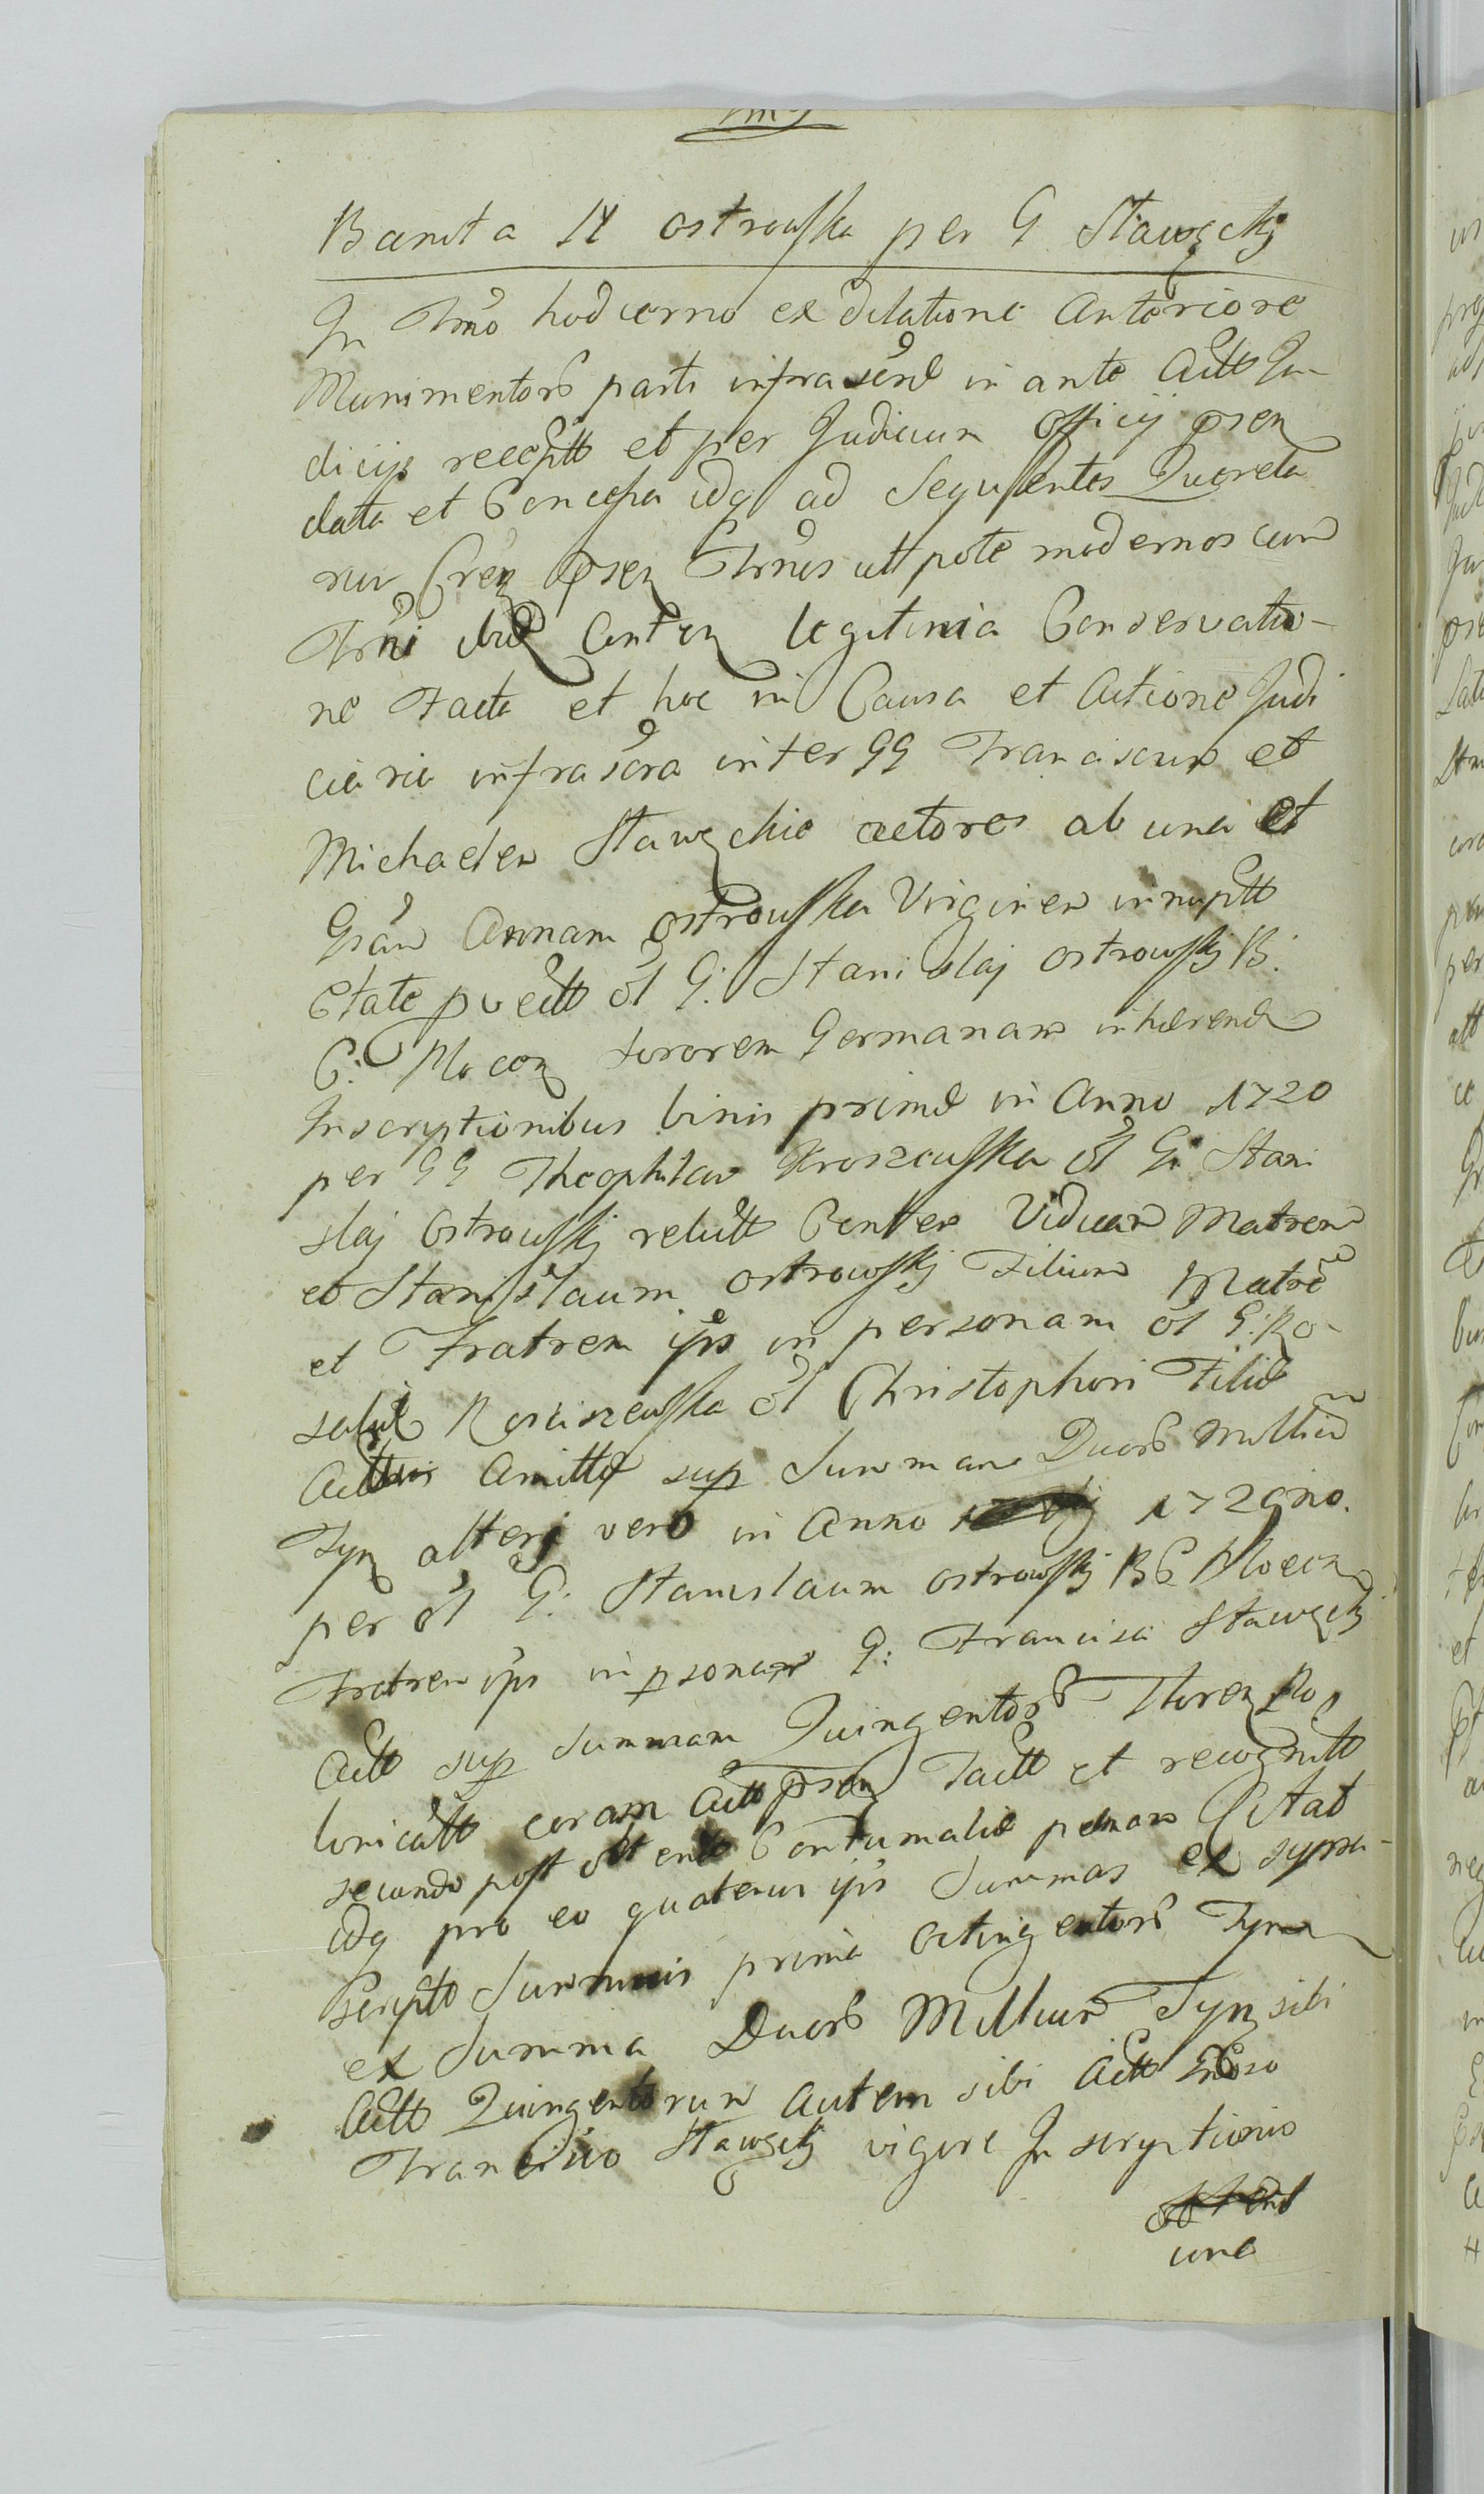 Banita G Ostrowska per G Stawscki
In Trno hodierno ex dilatione Anteriore
Munimentorb parti infrascrae in ante Actt Ju-
dicijs receptt et per Judicium Officij psen
data et Concessa idq ad Sequentes Querela
rum Cren psen Trnos utt pote modernos cum
Trni Canten legitima Conservatio-
ne Facta et hoc in Causa et Actione Judi
ciaria infrascra inter GG Franciscum et
Michaelem Stawsckie actores ab una et
Gsam Annam Ostrowska Virginem innuptt
Etate pvectt ol G: Stanislaj Ostrowskj B:
C: Plocen Sororem Germanam inhaerendo
Inscryptionibus binis prima in Anno 1720
per GG Theophilam Kroszewska ol G: Stani
slaj Ostrowskj relictt Conten Viduam Matrem
et Stanislaum Ostrowskj Filium Matre
et Fratrem ips in personam ol G: Ro-
saliae Rosciszewska ol Christophori Filiae
Actticis Amittae sup Summam Duorb Millium
Tyn altera vero in Anno 1729no.
per ol G: Stanislaum Ostrowskj BC Plocen
Fratrem ips in psonam G: Francisci Stawsckj
Actt sup Summam Quingentorb Floren Po
lonicatt coram Actt psen Factt et recognitt
secundo post obtend Contumaliae penam Citat
idq pro eo quatenus ips Summas ex supra-
scriptt Summis prima Octingentorb Tyn
ex Summa Duorb Millium Tyn sibi
Actt Quingentorum autem sibi Actt Gnoso
Francisco Stawsckj vigore Inscryptionis
una